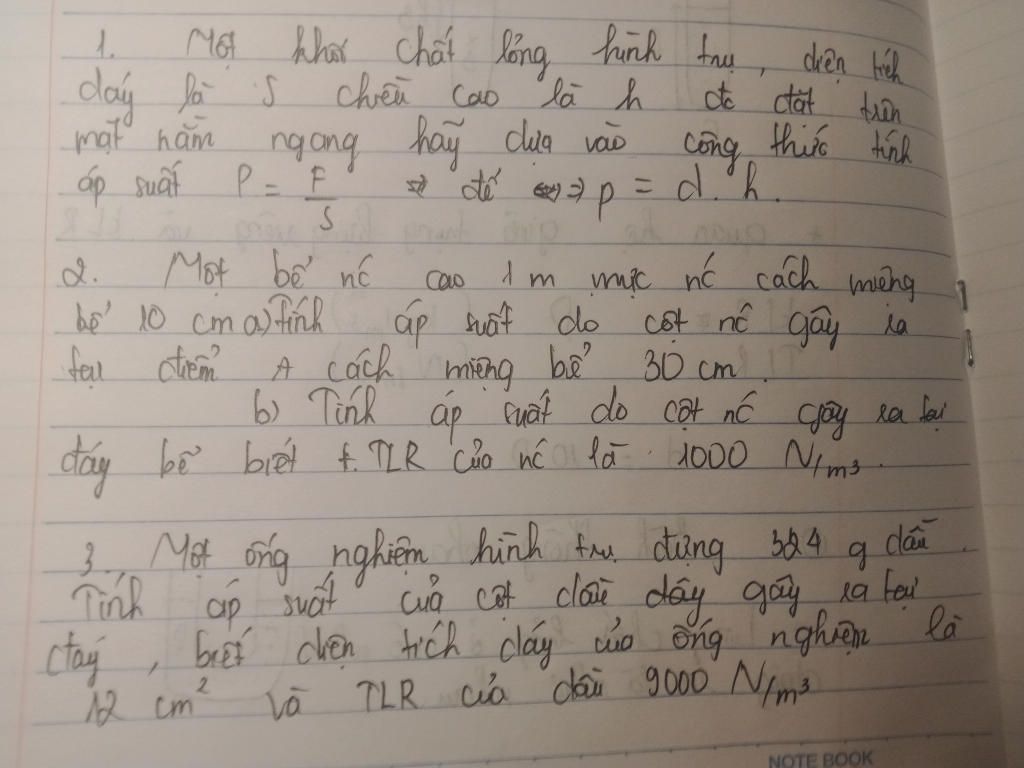 1. Một khối chất lỏng hình trụ, diện tích
đáy là S chiều cao là h đc đặt trên
mặt nằm ngang hãy dựa vào công thức tính
áp suất P = F/S ⇒ để ⇒ p = d.h.
2. Một bể nc cao 1 m mực nc cách miệng
bể 10 cm a) Tính áp suất do cột nc gây ra
tại điểm A cách miệng bể 30 cm.
b) Tính áp suất do cột nc gây ra tại
đáy bể biết t. TLR của nc là 1000 N/m³.
3. Một ống nghiệm hình trụ đựng 324 g dầu.
Tính áp suất của cột dầu đáy gây ra tại
đáy, biết diện tích đáy của ống nghiệm là
12 cm² và TLR của dầu 9000 N/m³
NOTE BOOK